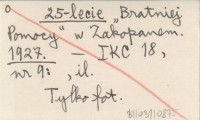 25-lecie „Bratniej
Pomocy" w Zakopanem.
1927. — IKC 18,
nr 9: , il.
Tylko fot.